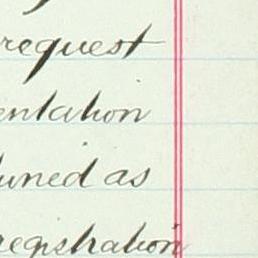 request
entation
uned as
registration